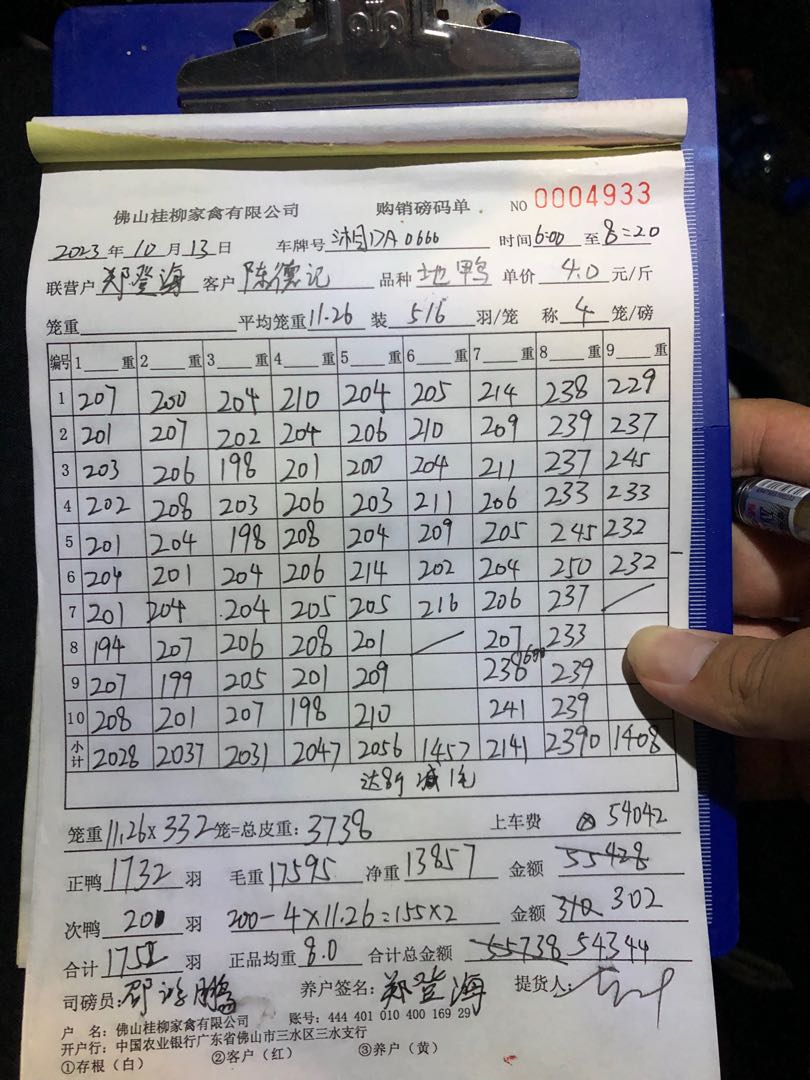 佛山桂柳家禽有限公司 购销磅码单 NO 0004933
2023年10月13日 车牌号 DA0666 时间6:00至8:20
联营户 郑登海 客户 陈德记 品种 地鸭 单价 4.0 元/斤
笼重 平均笼重11.26 装 5/6 羽/笼 称 4 笼/磅
编号 1 重 2 重 3 重 4 重 5 重 6 重 7 重 8 重 9 重
1 207 200 204 210 204 205 214 238 229
2 201 207 202 204 206 210 209 239 237
3 203 206 198 201 200 204 211 237 245
4 202 208 203 206 203 211 206 233 233
5 201 204 198 208 204 209 205 245 232
6 204 201 204 206 214 202 204 250 232
7 201 204 204 205 205 216 206 237
8 194 207 206 208 201 207 233
9 207 199 205 201 209 238 239
10 208 201 207 198 210 241 239
小计 2028 2037 2031 2047 2056 1457 2141 2390 1408
达8斤减1毛
笼重11.26×332笼=总皮重:3738 上车费 54042
正鸭1732羽 毛重17595 净重13857 金额 55428
次鸭 20 羽 200-4×11.26=155×2 金额 310 302
合计1752羽 正品均重8.0 合计总金额 55738 54344
司磅员: 养户签名:郑登海 提货人:
户 名:佛山桂柳家禽有限公司 账号:444 401 010 400 169 29
开户行:中国农业银行广东省佛山市三水区三水支行
①存根(白) ②客户(红) ③养户(黄)